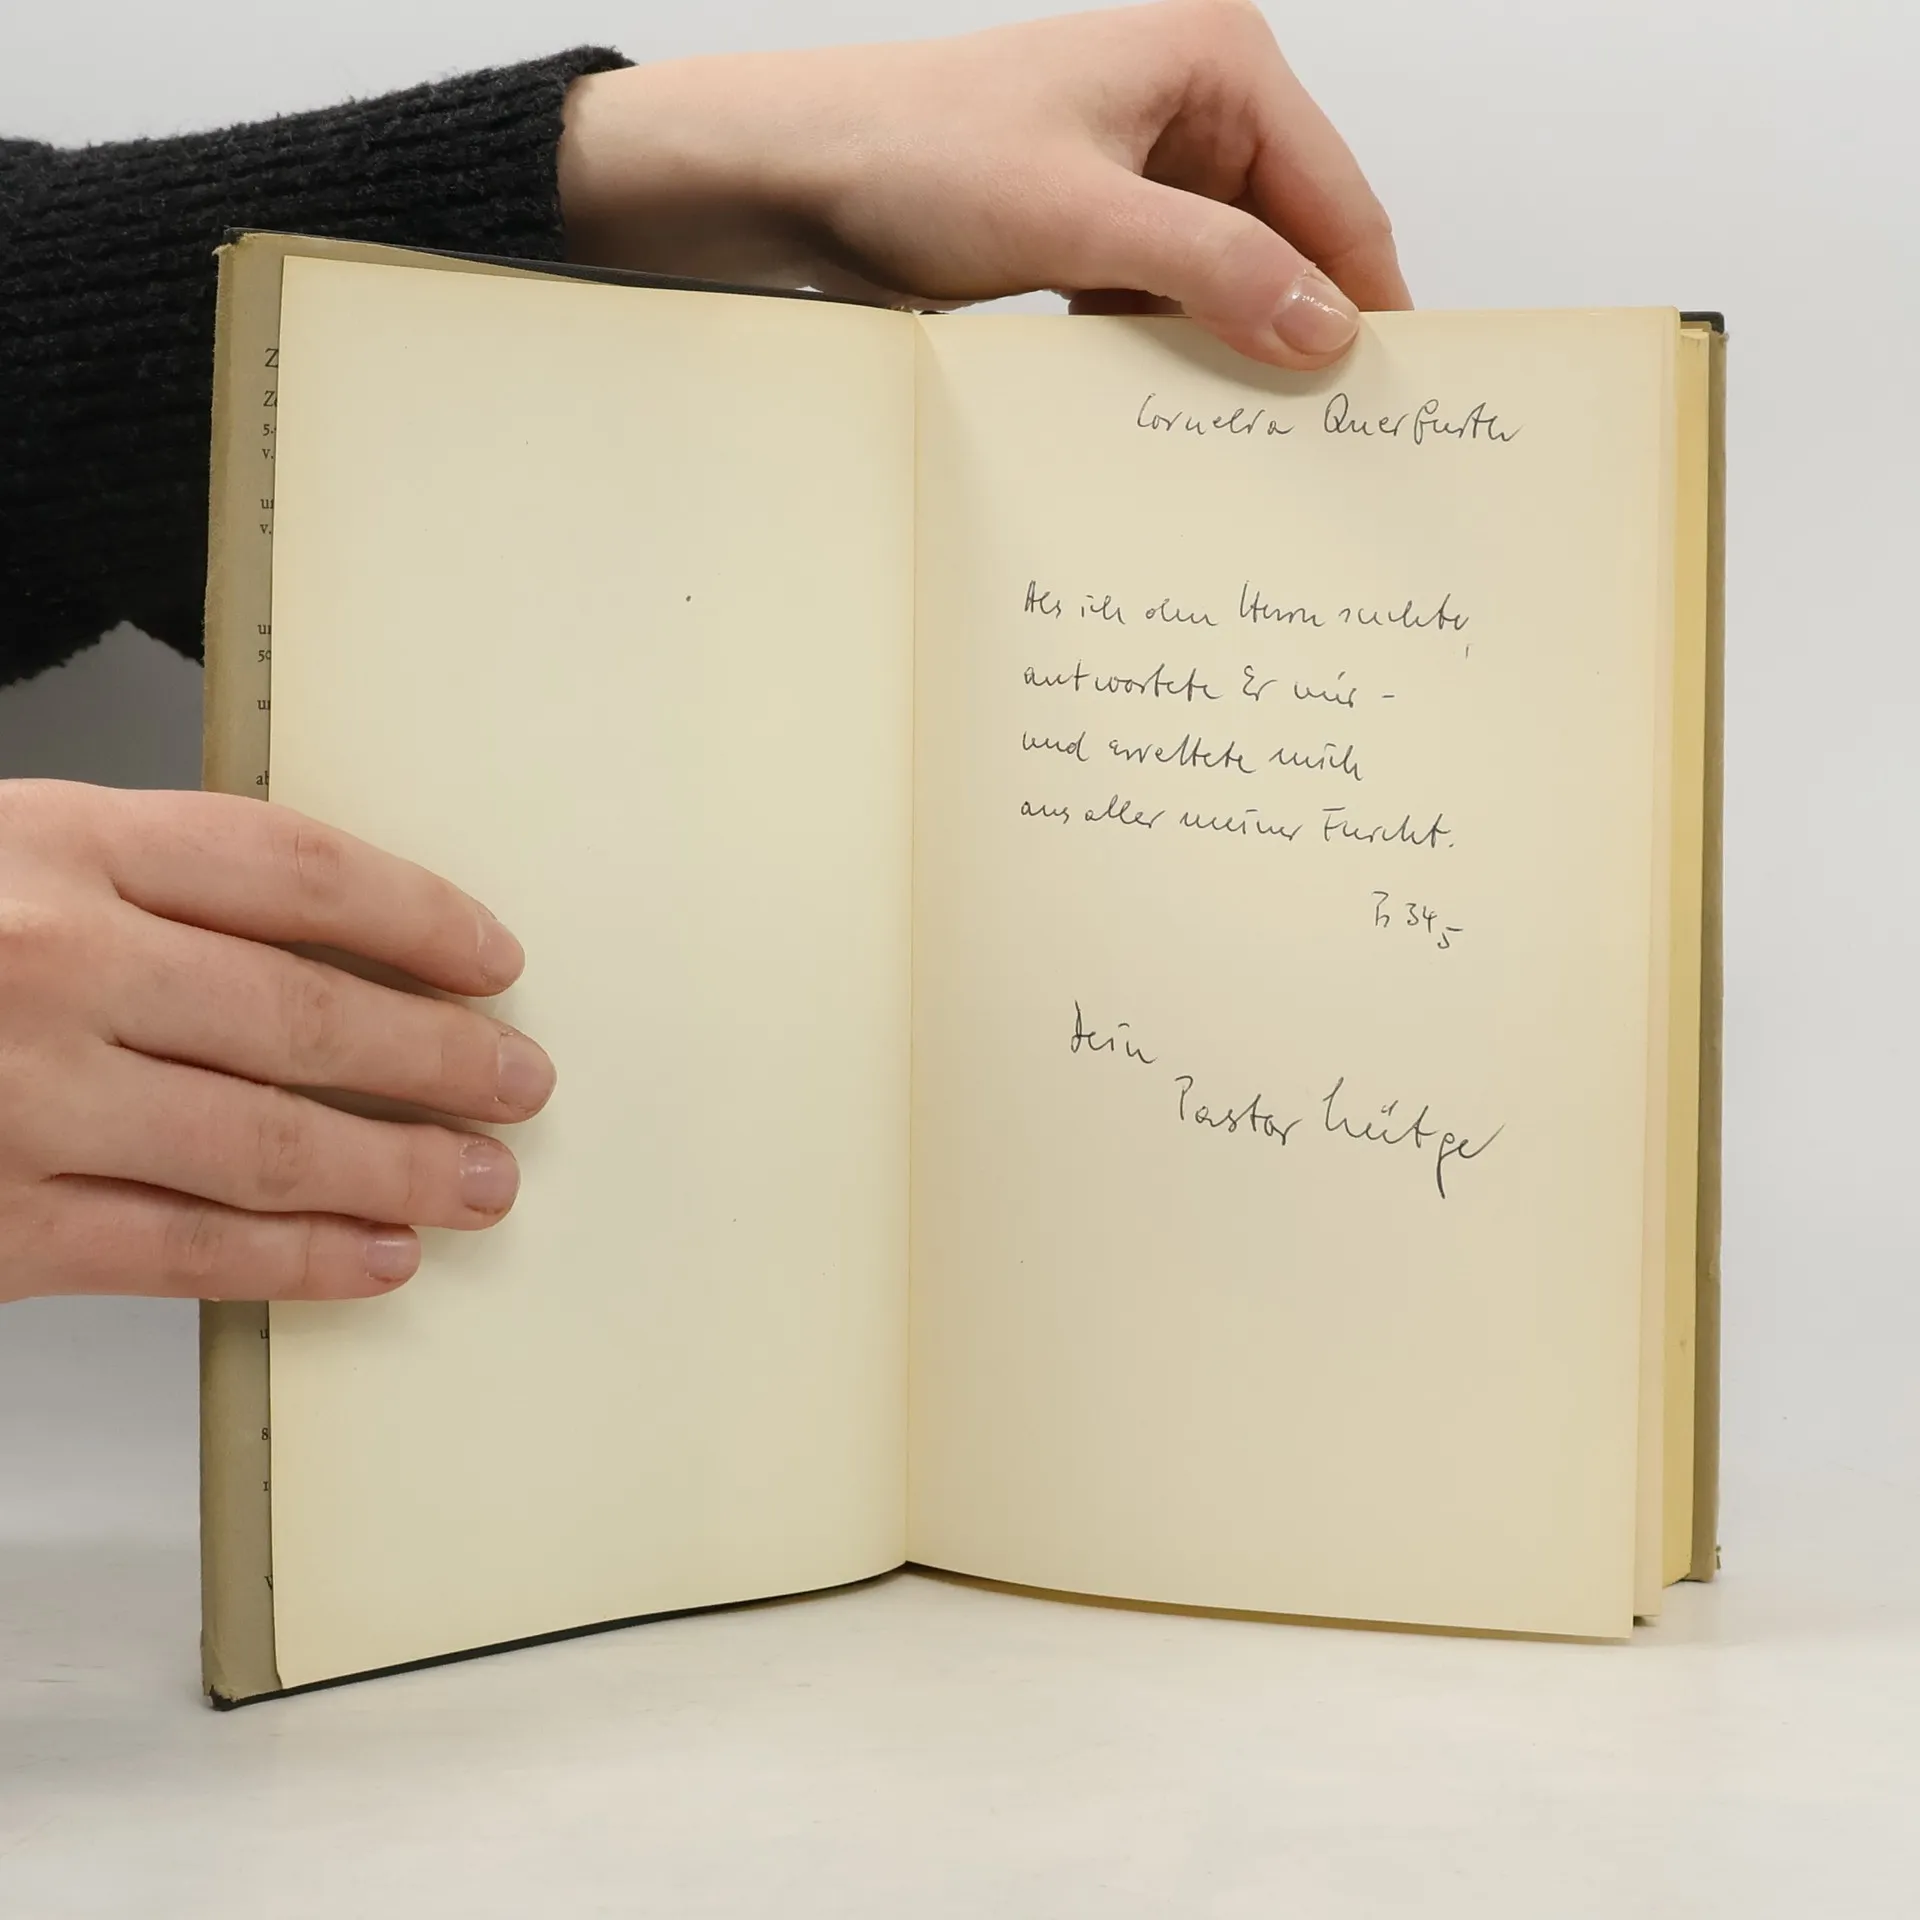 Z
Ze
5.
v.
un
v.
un
50
un
ab
u
8
1
V
Cornelia Querfurth
Als ich den Herrn suchte,
antwortete Er mir –
und errettete mich
aus aller meiner Furcht.
Ps 34,5
Dein
Pastor Lütge